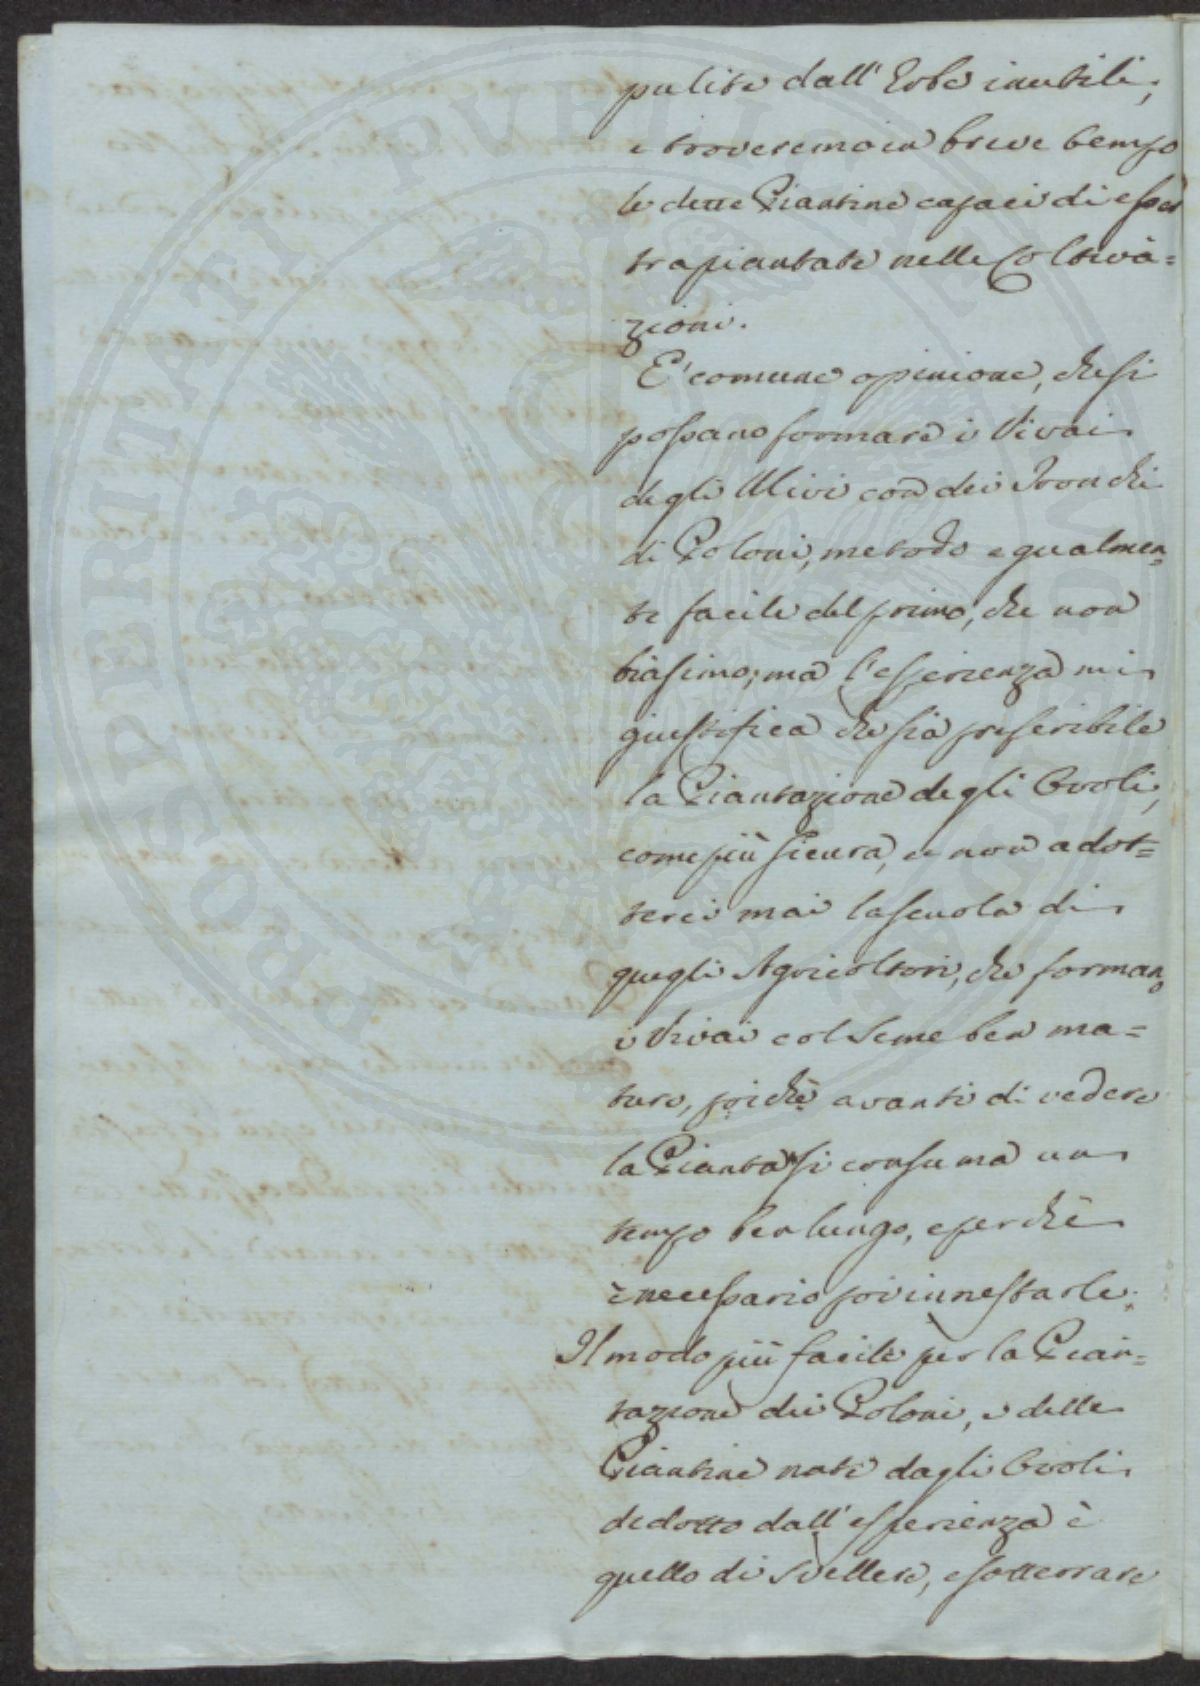 pulite dall' Erbe inutili,
e troveremo in breve tempo
le dette Piantine capaci di esser
trapiantate nelle Coltiva=
zioni.
E' comune opinione, che si
possano formare i Vivai
degli Ulivi con dei Tronchi
di Poloni, metodo egualmen
te facile del primo, che non
biasimo; ma l'esperienza mi
giustifica che sia preferibile
la Piantazione degli Ovoli,
come più sicura, e non adot=
terei mai la scuola di
quegli Agricoltori, che formano
i Vivai col Seme ben ma=
turo, poichè avanti di vedere
la Pianta si consuma un
tempo ben lungo, e perchè
è necessario poi innestarle.
Il modo più facile per la Pian=
tazione dei Poloni, e delle
Piantine nate dagli Ovoli
dedotto dall' esperienza è
quello di svellere, e sotterrare
PROSPERITATI PVBLICAE AVGENDAE